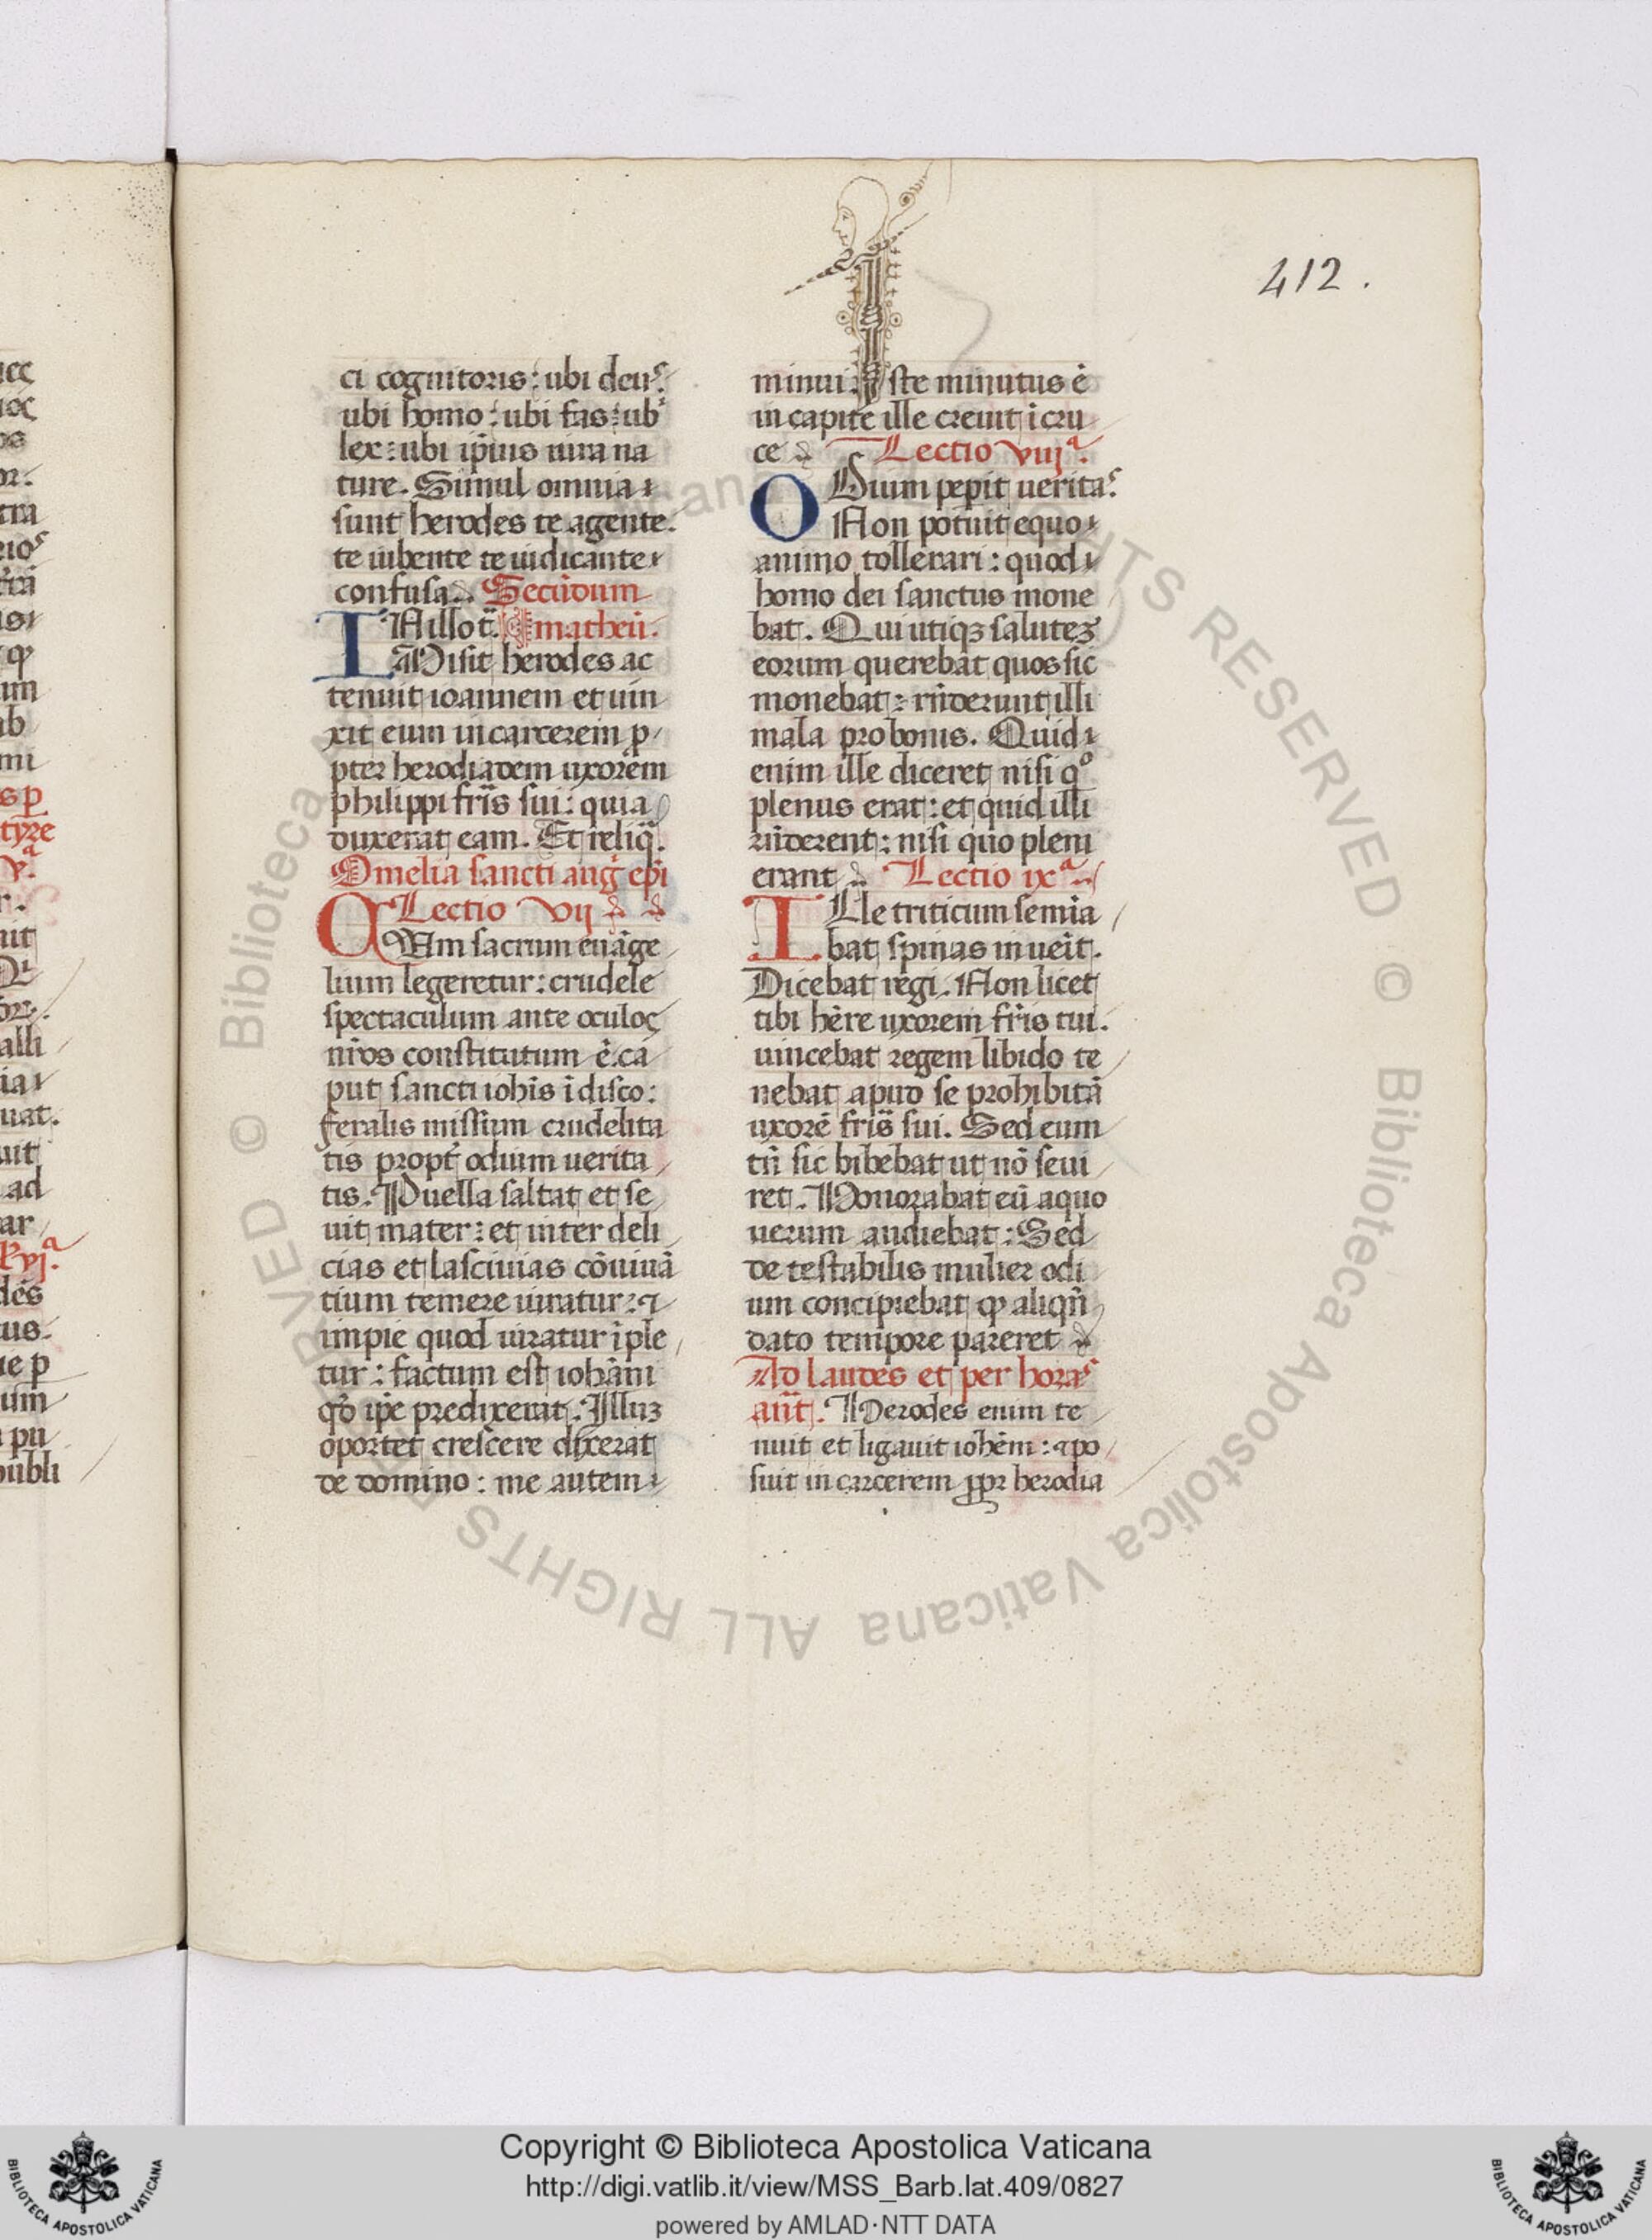 412.
ci cognitoris: ubi deuˢ.
ubi homo: ubi fas: ubⁱ
lex: ubi ip̄ius iura na
ture. Simul omnia
sunt herodes te agente.
te iubente te iudicante
confusa. Secūdum
IN illo t̄. matheū.
Misit herodes ac
tenuit ioannem et uin
xit eum in carcerem p
pter herodiadem uxorem
philippi fr̄is sui: quia
duxerat eam. Et reliq̄.
Omelia sancti auḡ ep̄i
Lectio vij
QVm sacrum euāge
lium legeretur: crudele
spectaculum ante oculoς
nr̄os constitutum ē. ca
put sancti ioh̄is ī disco:
feralis missum crudelita
tis propt̄ odium uerita
tis. Puella saltat et se
uit mater: et inter deli
cias et lasciuias cōuiuā
tium temere iuratur: ⁊
impie quod iuratur īple
tur: factum est iohāni
qō ip̄e predixerat. Illuꝫ
oportet crescere dixerat
de domino: me autem
minui. Iste minutus ē
in capite ille creuit ī cru
ce Lectio viijᵃ.
ODium pepit ueritaˢ.
Non potuit equo
animo tollerari: quod
homo dei sanctus mone
bat. Qui utiqꝫ saluteꝫ
eorum querebat quos sic
monebat: rn̄derunt illi
mala pro bonis. Quid
enim ille diceret nisi qᵒ
plenus erat: et quid illi
rn̄derent: nisi quo pleni
erant Lectio ixᵃ
ILle triticum semīa
bat spinas inueīt.
Dicebat regi. Non licet
tibi hēre uxorem fr̄is tui.
uincebat regem libido te
nebat apud se prohibitā
uxorē fr̄is sui. Sed eum
tn̄ sic bibebat ut nō seui
ret. Honorabat eū a quo
uerum audiebat: Sed
detestabilis mulier odi
um concipiebat ꝙ aliqn̄
dato tempore pareret
Ad laudes et per horaˢ
an̄t. Herodes enim te
nuit et ligauit iohēm: ⁊ po
suit in carcerem ꝓpr herodia
Copyright © Biblioteca Apostolica Vaticana
http://digi.vatlib.it/view/MSS_Barb.lat.409/0827
powered by AMLAD·NTT DATA
BIBLIOTECA APOSTOLICA VATICANA
BIBLIOTECA APOSTOLICA VATICANA
© Biblioteca Apostolica Vaticana ALL RIGHTS RESERVED © Biblioteca Apostolica Vaticana ALL RIGHTS RESERVED